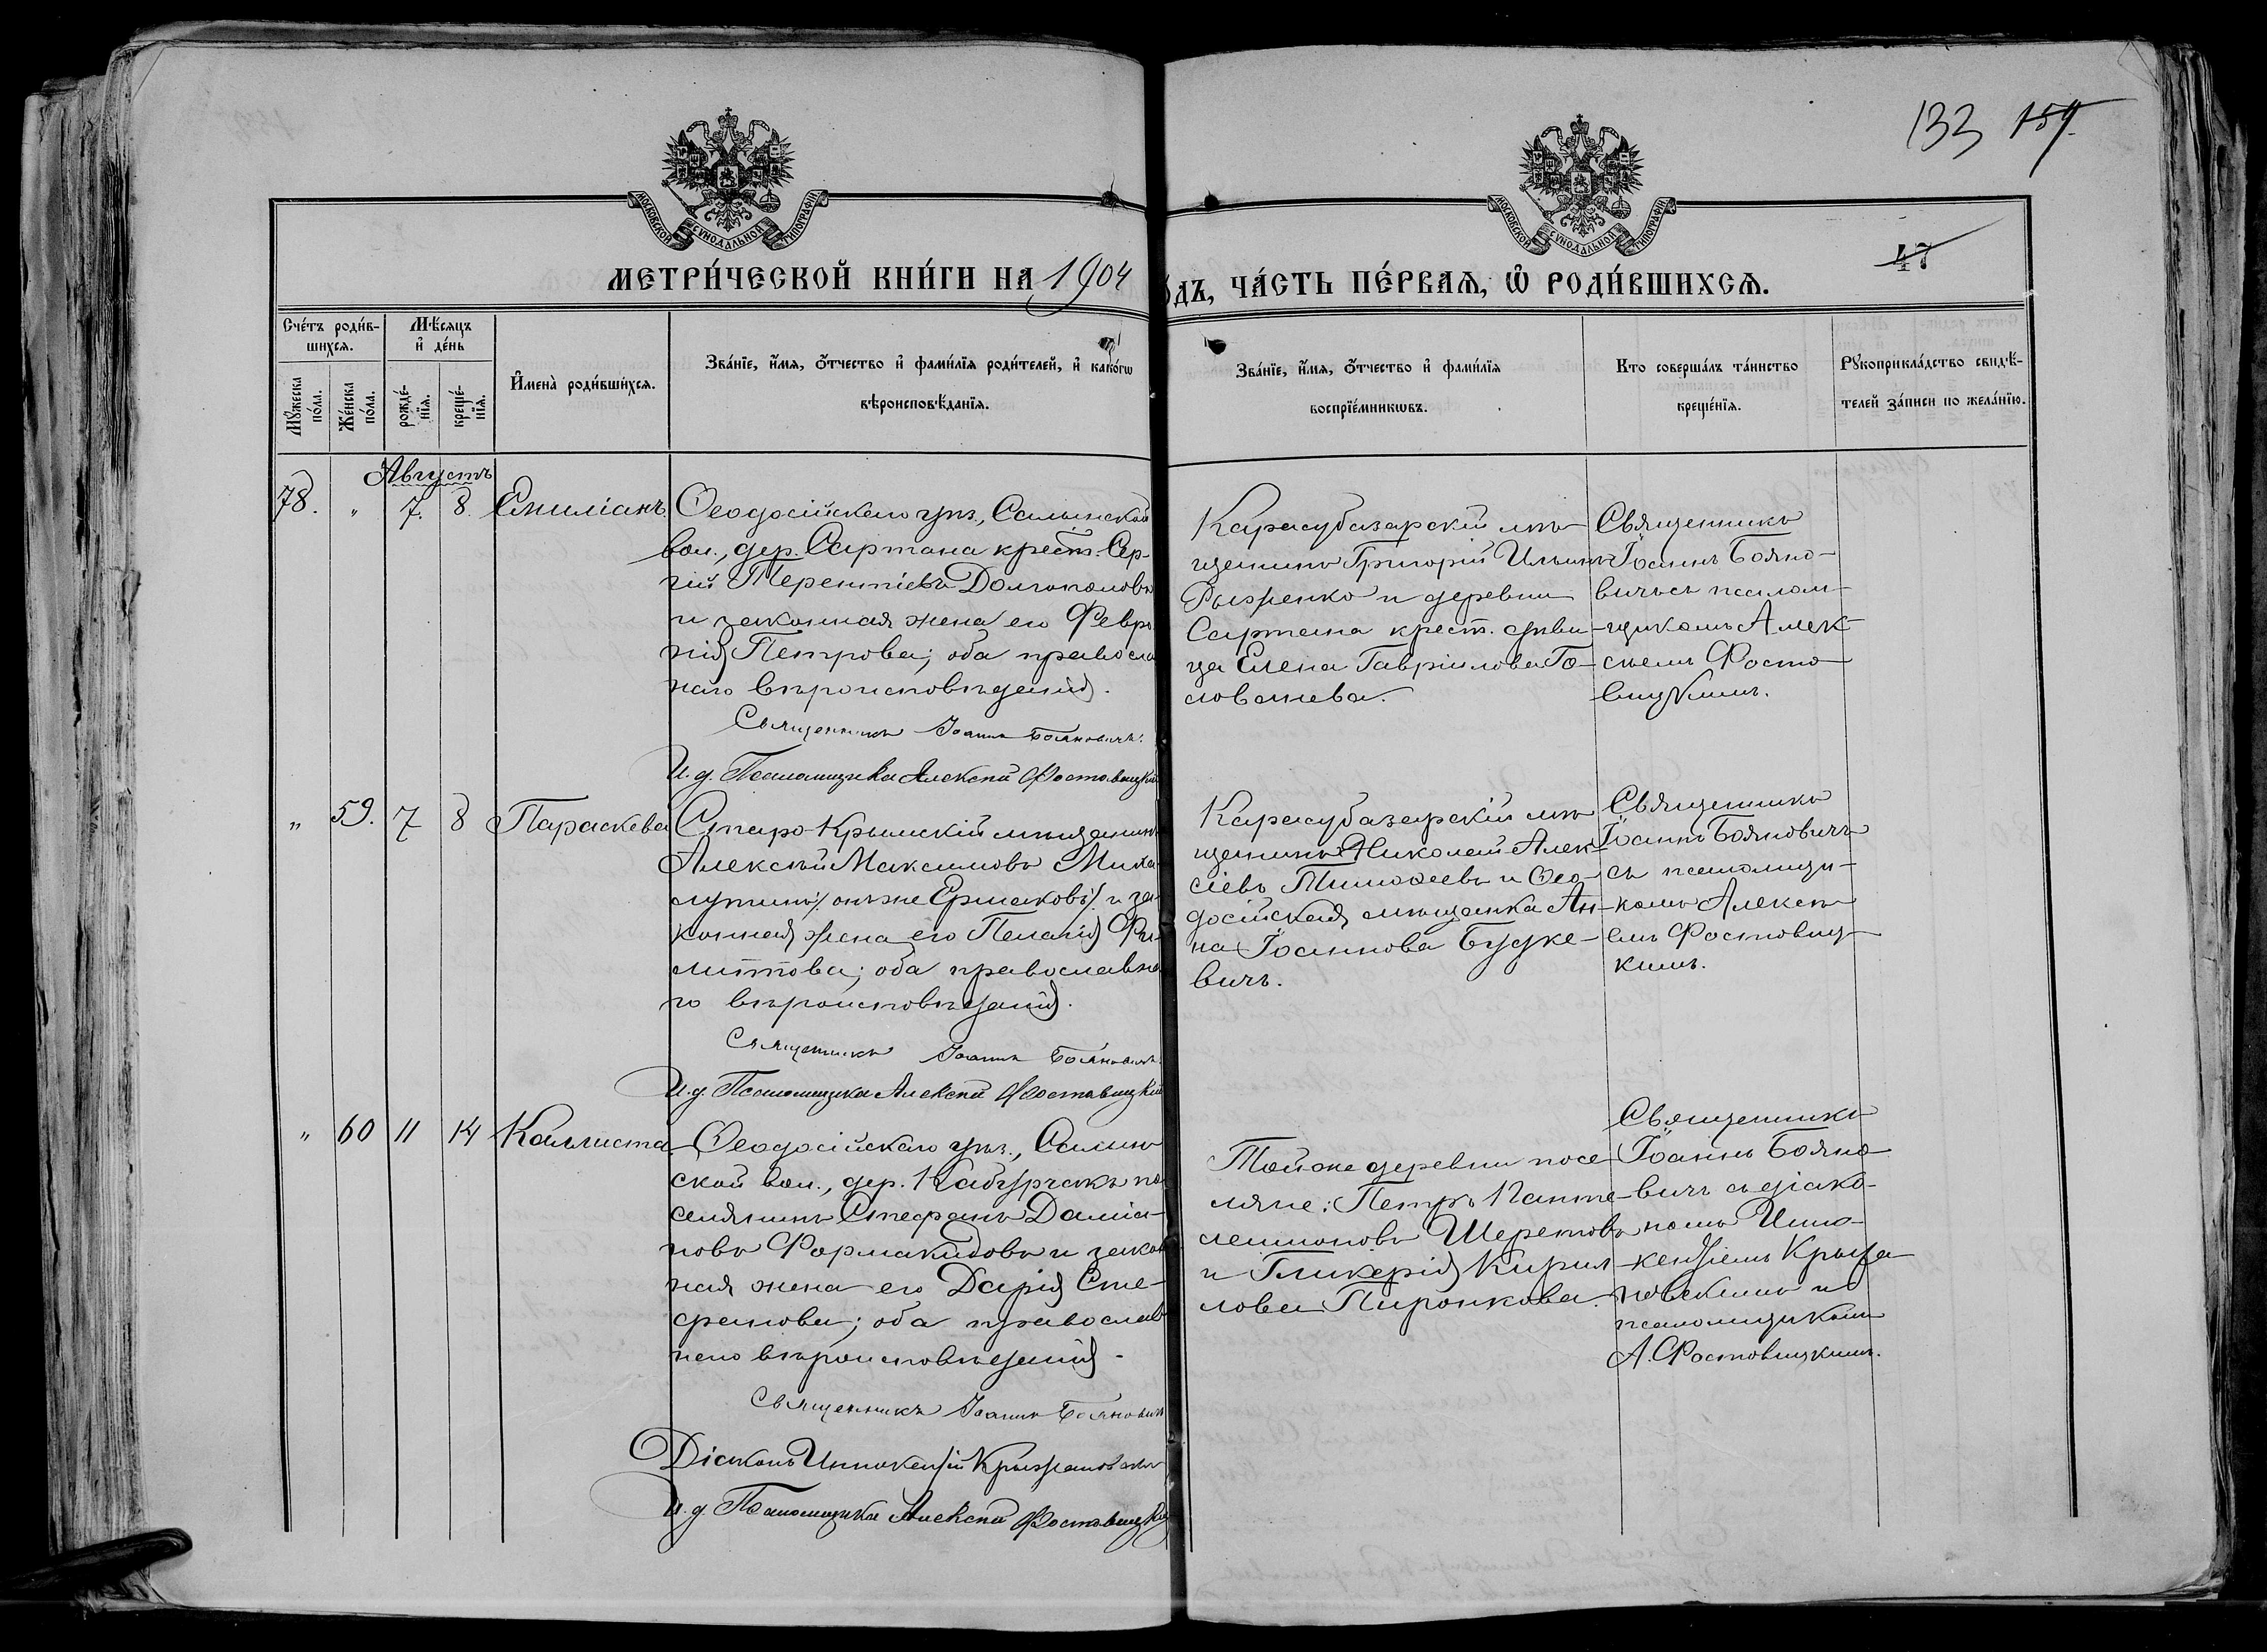 133 157.
МОСКОВСКОЙ СѴНОДАЛЬНОЙ ТИПОГРАФІИ
МОСКОВСКОЙ СѴНОДАЛЬНОЙ ТИПОГРАФІИ
47
МЕТРИ́ЧЕСКОЙ КНИ́ГИ НА 1904
ѻ́ДЪ, ЧА́СТЬ ПЕ́РВАѦ, Ѡ҆ РОДИ́ВШИХСѦ.
Сче́тъ роди́в-
шихсѧ.
Мѣ́сѧцъ
и҆ де́нь
Мꙋ́жеска
по́ла.
Же́нска
по́ла.
рожде́-
нїѧ.
креще́-
нїѧ.
И҆мена̀ роди́вшихсѧ.
Зва́нїе, и҆́мѧ, ѻ҆́тчество и҆ фами́лїѧ роди́телей, и҆ како́гѡ
вѣроисповѣ́данїѧ.
Зва́нїе, и҆́мѧ, ѻ҆́тчество и҆ фами́лїѧ
воспрїе́мникѡвъ.
Кто соверша́лъ та́инство
креще́нїѧ.
Рꙋкоприкла́дство свидѣ́-
телей за́писи по жела́нїю.
Августъ
78. " 7. 8. Емиліанъ.
Ѳеодосійскаго уѣз., Салынской
вол., дер. Сартана крест. Сер-
гій Терентіевъ Долгополовъ
и законная жена его Февро
нія Петрова; оба правосла
наго вѣроисповѣданія.
Священникъ Іоаннъ Бояновичъ.
И. д. Псаломщика Алексѣй Фостовицкій
Карасубазарскій мѣ-
щанинъ Григорій Ильинъ
Рыженко и деревни
Сартана крест. дѣви-
ца Елена Гавріилова Го-
лованева.
Священникъ
Іоаннъ Бояно-
вичъ съ псалом-
щикомъ Алек-
сѣемъ Фосто-
вицкимъ.
" 59. 7 8 Параскева
Старо-Крымскій мѣщанинъ
Алексѣй Максимовъ Миха-
лутинъ /: онъ же Ермаковъ :/ и за-
конная жена его Пелагія Фи-
липпова; оба православна
го вѣроисповѣданія.
Священникъ Іоаннъ Бояновичъ
И. д. Псаломщика Алексѣй Фостовицкій
Карасубазарскій мѣ-
щанинъ Николай Алек-
сіевъ Тимоѳеевъ и Ѳео-
досійская мѣщанка Ан-
на Іоаннова Будке-
вичъ.
Священникъ
Іоаннъ Бояновичъ
съ псаломщи-
комъ Алексѣ-
емъ Фостовиц-
кимъ.
" 60 11 14 Каллиста
Ѳеодосійскаго уѣз., Салын
ской вол., дер. Кабурчакъ по
селянинъ Стефанъ Даміа-
новъ Формакидовъ и закон
ная жена его Дарія Сте-
фанова; оба православ
наго вѣроисповѣданія.
Священникъ Іоаннъ Бояновичъ
Діаконъ Иннокентій Крыжановскій
И. д. Псаломщика Алексѣй Фостовицкій
Той же деревни посе
ляне: Петръ Панте-
леимоновъ Шереметовъ
и Гликерія Кирил-
лова Пиронкова.
Священникъ
Іоаннъ Бояно-
вичъ съ діако-
номъ Инно-
кентіемъ Крыжа
новскимъ и
псаломщикомъ
А. Фостовицкимъ.